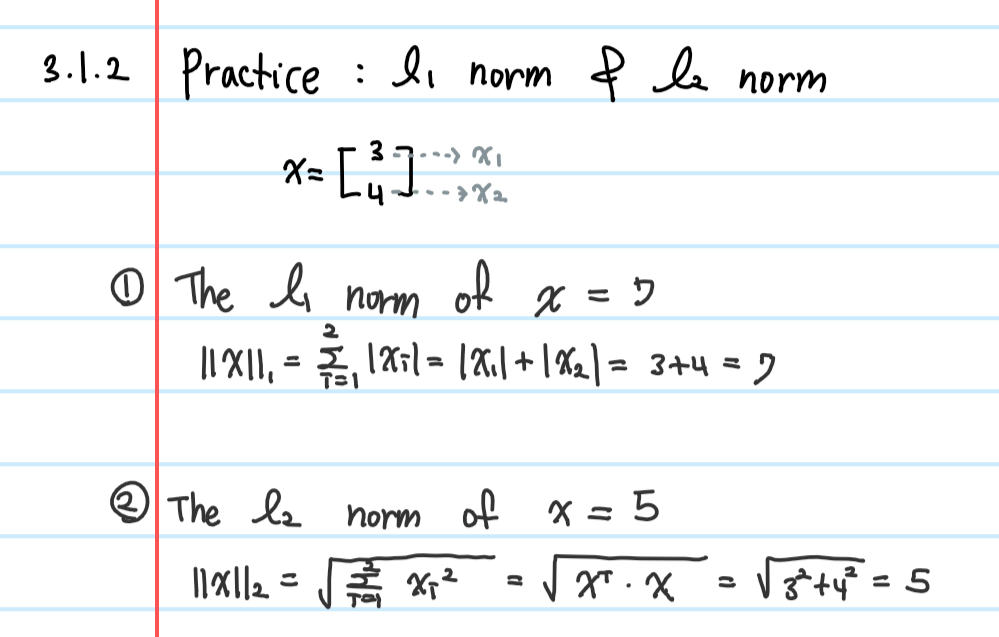 3.1.2 Practice : l₁ norm & l₂ norm
x = [3 4] ⇢ x₁ ⇢ x₂
① The l₁ norm of x = 7
||x||₁ = Σ²ᵢ₌₁ |xᵢ| = |x₁| + |x₂| = 3+4 = 7
② The l₂ norm of x = 5
||x||₂ = √(Σ²ᵢ₌₁ xᵢ²) = √(xᵀ · x) = √(3²+4²) = 5